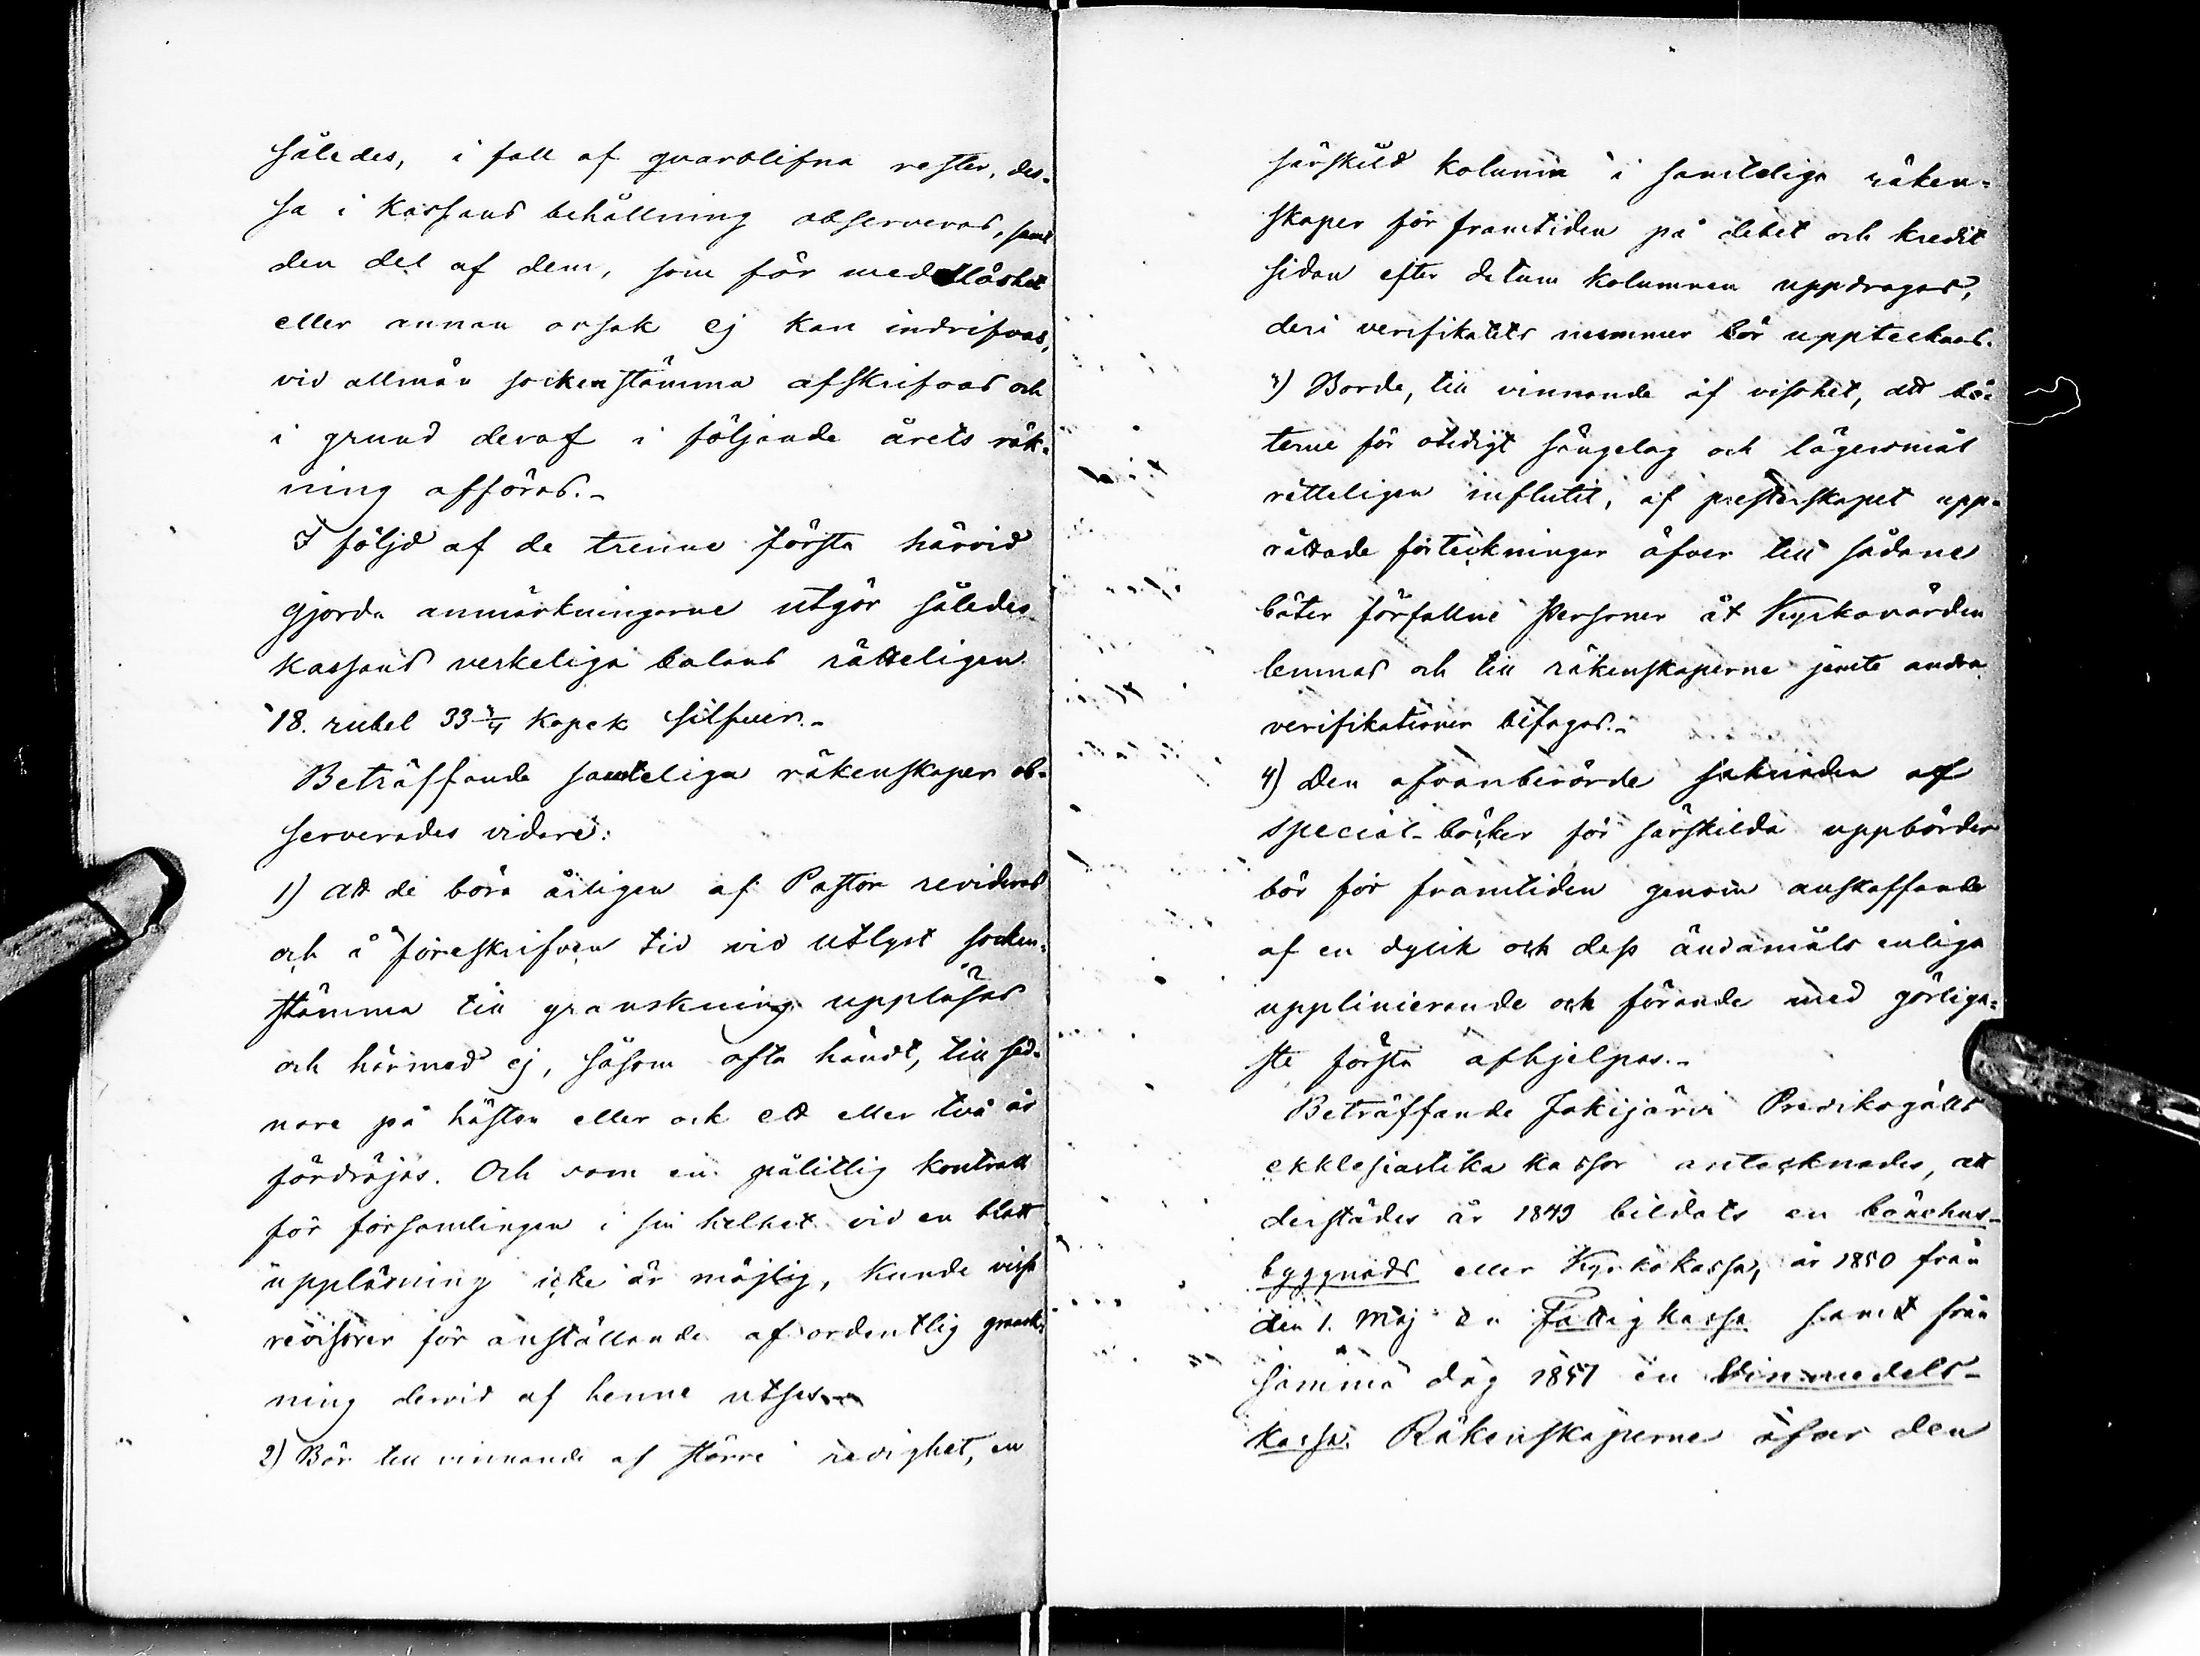 således, i fall af qvarblifna rester, des-
sa i Kassans behållning observeras, samt
den del af dem, som för medellöshet
eller annan orsak ej kan indrifvas,
vid allmän sockenstämma afskrifvas och
i grund deraf i följande årets räk-
ning afföras.-
I följd af de trenne första härvid
gjorda anmärkningarne utgör således
kassans verkeliga balans rätteligen
18. rubel 33 3/4 kopek silfver.-
Beträffande samteliga räkenskaper ob-
serverades vidare:
1) att de böra årligen af Pastor revideras
och å föreskrifven tid vid utlyst socken-
stämma till granskning uppläsas
och härmed ej, såsom ofta händt, till sed-
nare på hösten eller ock ett eller två år
fördröjas. Och som en pålitlig kontroll
för församlingen i sin helhet vid en blott
uppläsning icke är möjlig, kunde vissa
revisorer för anställande af ordentlig gransk-
ning dervid af henne utses.
2) Bör till vinnande af större redighet, en
särskild kolumn i samteliga räken-
skaper för framtiden på debet och kredit
sidan efter datum kolumnen uppdragas,
deri verifikatets nummer bör upptecknas.
3) Borde, till vinnande af visshet, att bö-
terne för otidigt sängelag och lägersmål
rätteligen influtit, af presterskapet upp-
rättade förteckningar öfver till sådane
böter förfallne Personer åt Kyrkovärden
lemnas och till räkenskaperne jemte andra
verifikationer bifogas.-
4) Den ofvanberörde saknaden af
special-böcker för särskilda uppbörder
bör för framtiden genom anskaffande
af en dylik och dess ändamåls enliga
upplinierande och förande med görliga-
ste första afhjelpas.-
Beträffande Jokijärvi Predikogälls
ekklesiastika kassor antecknades, att
derstädes år 1849 bildats en bönehus-
byggnads eller Kyrkokassa, år 1850 från
den 1. Maj en Fattigkassa samt från
samma dag 1851 en Vinmedels-
kassa. Räkenskaperne öfver den